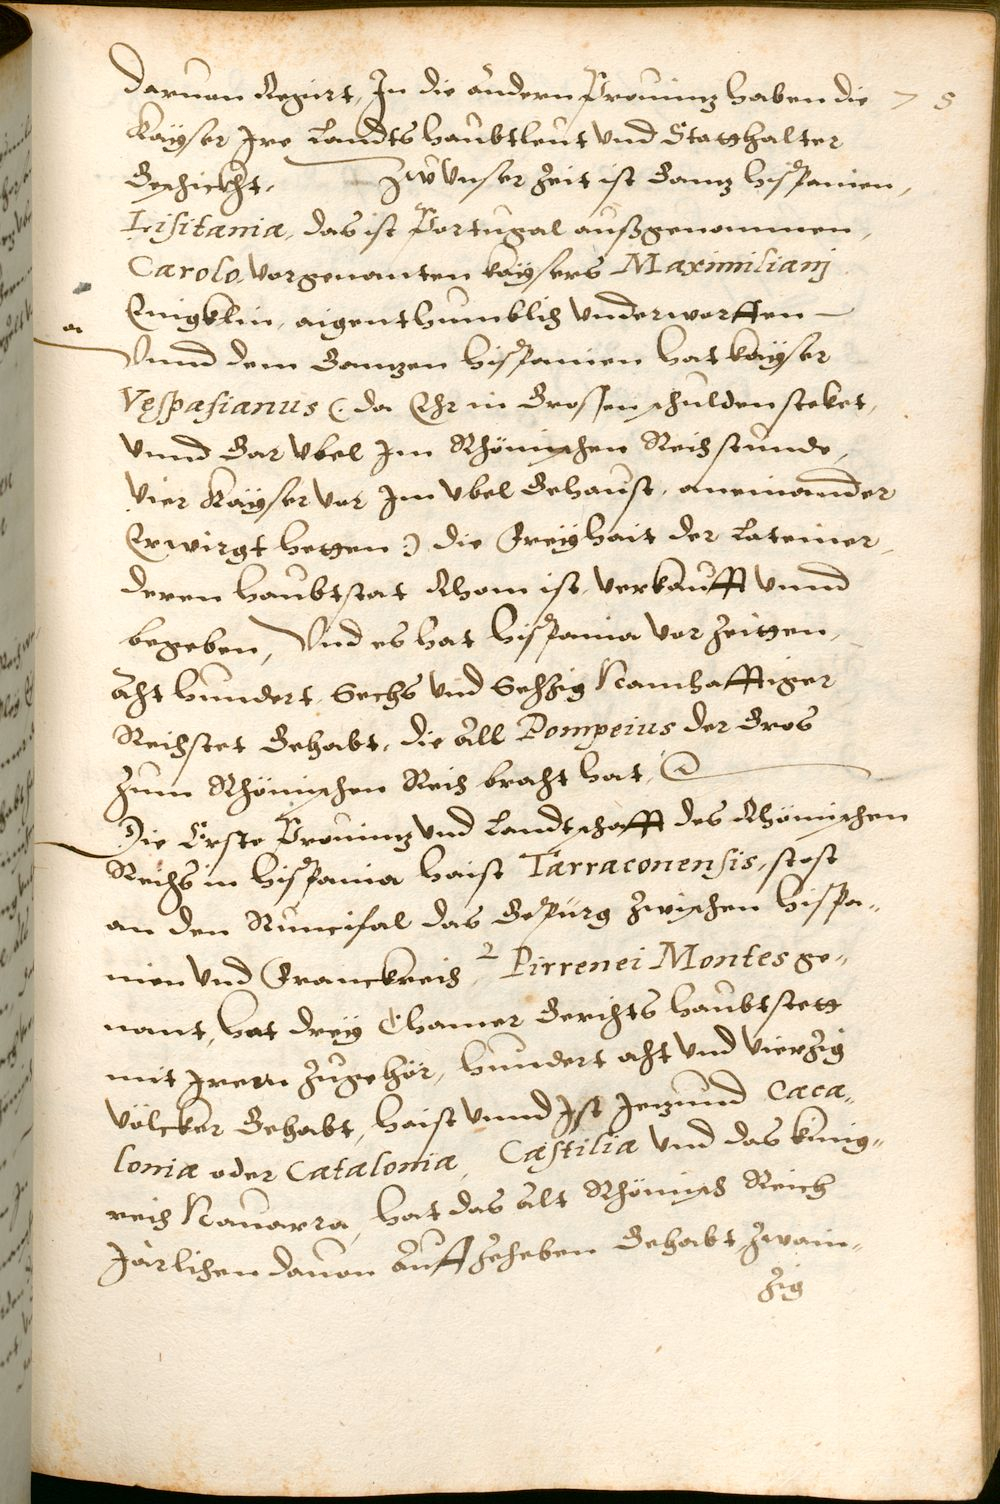 daruon Regirt, In die andern Prouintz haben die 75
Kayser Ire Landtshaubtleut vnd Statthalter
Geschickht. Zw vnser Zeit ist Gantz Hispanien,
Lisitania, das ist Portugal außgenommen,
Carolo, vorgenanten Kaysers Maximiliani
Enigklin, aigenthumblich vnderworffen
Vnnd dem Gantzen Hispanien hat Kayser
Vespasianus (: da Ehr in Grossen schulden stekct,
vnnd Gar Vbel Im Rhömischen Reich stunde,
Vier Kayser vor Im vbel Gehaust, aneinander
Erwirgt hetten :) die Freyhait der Lateiner,
deren haubtstat Rhom ist, verkaufft vnnd
begeben, Vnd es hat Hispania vor Zeitten,
acht hundert Sechs vnd Sechzig Namhafftiger
Reichstet Gehabt, die all Pompeius der Gros
zum Rhömischen Reich bracht hat,
Die Erste Prouintz vnd Landtschafft des Rhömischen
Reichs in Hispania haist Tarraconensis, stost
an den Runcifal das Gepürg zwischen Hispa„
nien vnd Franckreich, 2 Pirrenei Montes ge„
nant, hat drey Chamer Gerichts haubtstett
mit Irem Zugehör, hundert acht vnd vierzig
Völcker Gehabt, haist vnnd Ist Jetzund Caca„
lonia oder Catalonia, Castilia vnd das Kunig„
reich Nauarra, hat das alt Rhömisch Reich
Järlichen dauon Auffzeheben Gehabt, Zwain„
zig